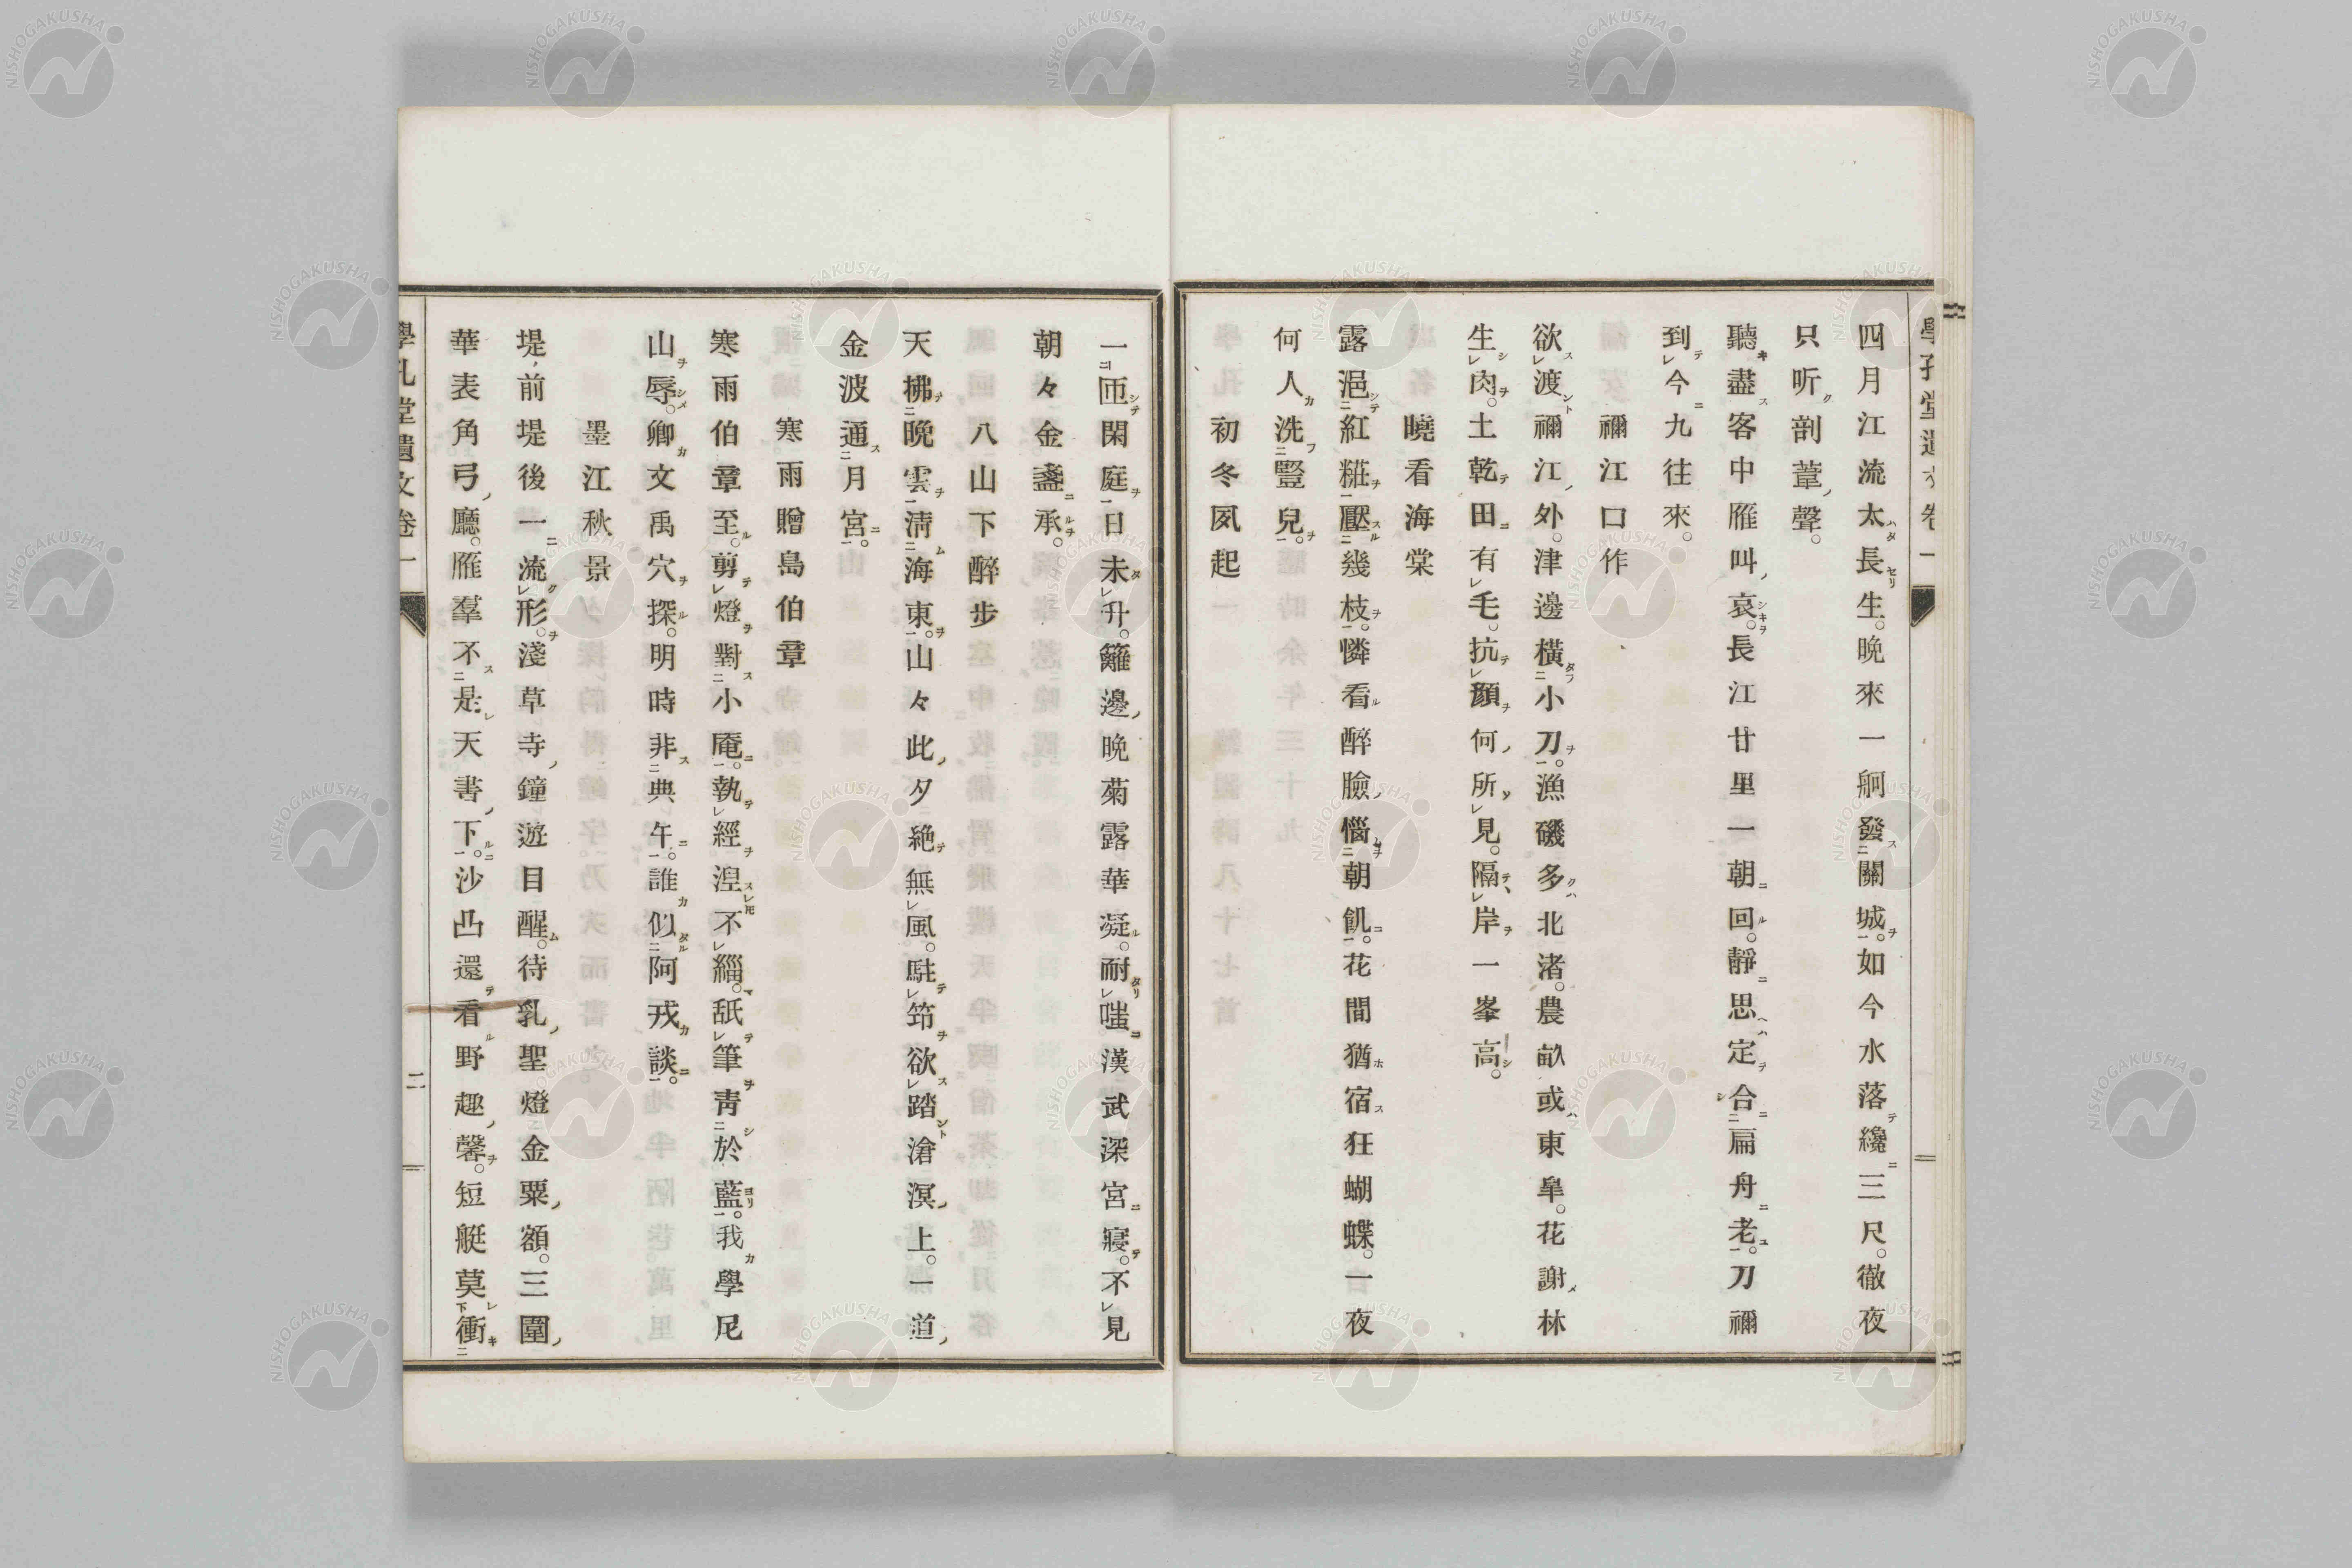 四月江流太長生。晩來一舸發關城。如今水落纔三尺。徹夜
只听剖葦聲。
聽盡客中雁叫哀。長江廿里一朝回。靜思定合扁舟老。刀禰
到今九往來。
禰江口作
欲渡禰江外。津邊橫小刀。漁磯多北渚。農畝或東皐。花謝林
生肉。土乾田有毛。抗顏何所見。隔岸一峯高。
曉看海棠
露浥紅糚壓幾枝。憐看醉臉惱朝飢。花間猶宿狂蝴蝶。一夜
何人洗豎兒。
初冬夙起
一匝閑庭日未升。籬邊晩菊露華凝。耐嗤漢武深宮寢。不見
朝々金盞承。
八山下醉步
天拂晩雲淸海東。山々此夕絶無風。駐筇欲踏滄溟上。一道
金波通月宮。
寒雨贈島伯章
寒雨伯章至。剪燈對小庵。執經涅不緇。舐筆靑於藍。我學尼
山辱。卿文禹穴探。明時非典午。誰似阿戎談。
墨江秋景
堤前堤後一流形。淺草寺鐘遊目醒。待乳聖燈金粟額。三圍
華表角弓廳。雁羣不是天書下。沙凸還看野趣馨。短艇莫衝
學孔堂遺文卷一
二